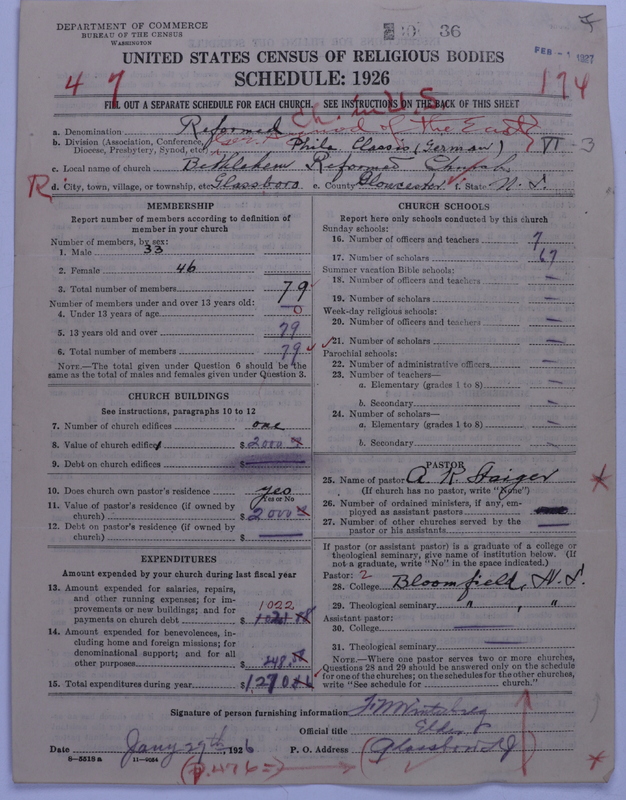 DEPARTMENT OF COMMERCE
BUREAU OF THE CENSUS
WASHINGTON
36
FEB -1 1927
UNITED STATES CENSUS OF RELIGIOUS BODIES
SCHEDULE: 1926
4 7
174
FILL OUT A SEPARATE SCHEDULE FOR EACH CHURCH. SEE INSTRUCTIONS ON THE BACK OF THIS SHEET
Ch. in U.S.
a. Denomination Reformed
Synod of the East
b. Division (Association, Conference, Diocese, Presbytery, Synod, etc.) Phila Classis (German) VI - 3
c. Local name of church Bethlehem Reformed Church
R d. City, town, village, or township, etc. Glassboro e. County Gloucester f. State N. J.
MEMBERSHIP
Report number of members according to definition of
member in your church
Number of members, by sex:
1. Male 33
2. Female 46
3. Total number of members 79
Number of members under and over 13 years old:
4. Under 13 years of age 0
5. 13 years old and over 79
6. Total number of members 79
NOTE.—The total given under Question 6 should be the
same as the total of males and females given under Question 3.
CHURCH BUILDINGS
See instructions, paragraphs 10 to 12
7. Number of church edifices one
8. Value of church edifices $ 2000
9. Debt on church edifices $
10. Does church own pastor's residence yes
Yes or No
11. Value of pastor's residence (if owned by
church) $ 2000
12. Debt on pastor's residence (if owned by
church) $
EXPENDITURES
Amount expended by your church during last fiscal year
13. Amount expended for salaries, repairs,
and other running expenses; for im-
provements or new buildings; and for
payments on church debt $ 1022
14. Amount expended for benevolences, in-
cluding home and foreign missions; for
denominational support; and for all
other purposes $ 248
15. Total expenditures during year $ 1270
CHURCH SCHOOLS
Report here only schools conducted by this church
Sunday schools:
16. Number of officers and teachers 7
17. Number of scholars 67
Summer vacation Bible schools:
18. Number of officers and teachers —
19. Number of scholars —
Week-day religious schools:
20. Number of officers and teachers —
21. Number of scholars —
Parochial schools:
22. Number of administrative officers —
23. Number of teachers—
a. Elementary (grades 1 to 8) —
b. Secondary —
24. Number of scholars—
a. Elementary (grades 1 to 8) —
b. Secondary —
PASTOR
25. Name of pastor A. K. Staiger
(If church has no pastor, write "None")
26. Number of ordained ministers, if any, em-
ployed as assistant pastors
27. Number of other churches served by the
pastor or his assistants —
If pastor (or assistant pastor) is a graduate of a college or
theological seminary, give name of institution below. (If
not a graduate, write "No" in the space indicated.)
Pastor: 2
28. College Bloomfield, N. J.
29. Theological seminary " , "
Assistant pastor:
30. College —
31. Theological seminary —
NOTE.—Where one pastor serves two or more churches,
Questions 28 and 29 should be answered only on the schedule
for one of the churches; on the schedules for the other churches,
write "See schedule for church."
Signature of person furnishing information
Official title Elder
Date Jany 29th, 1926 P. O. Address Glassboro NJ
8-5518a 11-9084